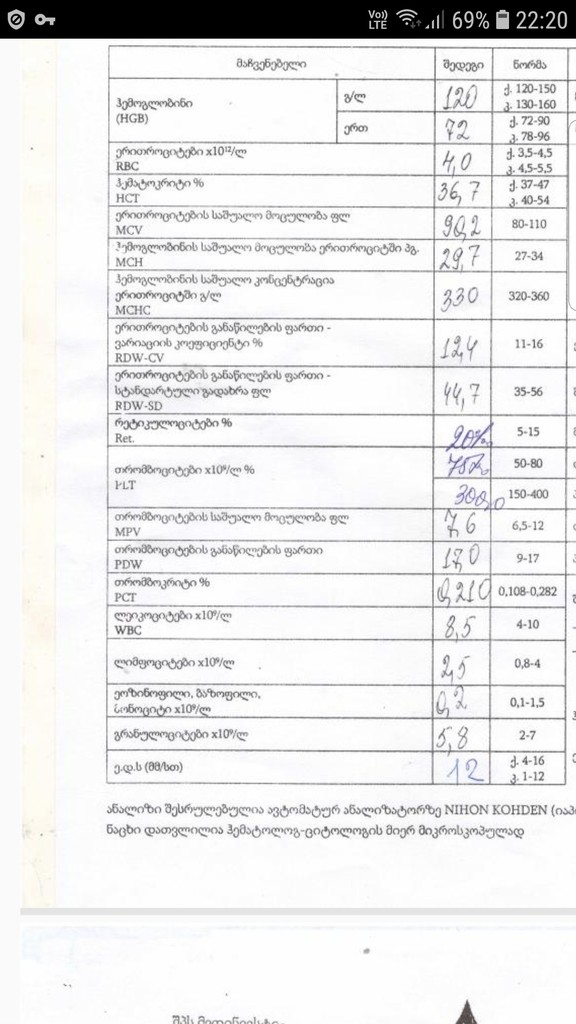 Vo)) LTE 69% 22:20
მაჩვენებელი შედეგი ნორმა
ჰემოგლობინი (HGB) გ/ლ 120 ქ. 120-150 კ. 130-160
ერთ 72 ქ. 72-90 კ. 78-96
ერითროციტები x10¹²/ლ
RBC 4,0 ქ. 3,5-4,5 კ. 4,5-5,5
ჰემატოკრიტი %
HCT 36,7 ქ. 37-47 კ. 40-54
ერითროციტების საშუალო მოცულობა ფლ
MCV 90,2 80-110
ჰემოგლობინის საშუალო მოცულობა ერითროციტში პგ.
MCH 29,7 27-34
ჰემოგლობინის საშუალო კონცენტრაცია
ერითროციტში გ/ლ
MCHC 330 320-360
ერითროციტების განაწილების ფართი -
ვარიაციის კოეფიციენტი %
RDW-CV 12,4 11-16
ერითროციტების განაწილების ფართი -
სტანდარტული გადახრა ფლ
RDW-SD 44,7 35-56
რეტიკულოციტები %
Ret. 5-15
თრომბოციტები x10⁹/ლ % 50-80
PLT 300,0 150-400
თრომბოციტების საშუალო მოცულობა ფლ
MPV 7,6 6,5-12
თრომბოციტების განაწილების ფართი
PDW 17,0 9-17
თრომბოკრიტი %
PCT 0,210 0,108-0,282
ლეიკოციტები x10⁹/ლ
WBC 8,5 4-10
ლიმფოციტები x10⁹/ლ 2,5 0,8-4
ეოზინოფილი, ბაზოფილი,
მონოციტი x10⁹/ლ 0,2 0,1-1,5
გრანულოციტები x10⁹/ლ 5,8 2-7
ე.დ.ს (მმ/სთ) 12 ქ. 4-16 კ. 1-12
ანალიზი შესრულებულია ავტომატურ ანალიზატორზე NIHON KOHDEN
ნაცხი დათვლილია ჰემატოლოგ-ციტოლოგის მიერ მიკროსკოპულად